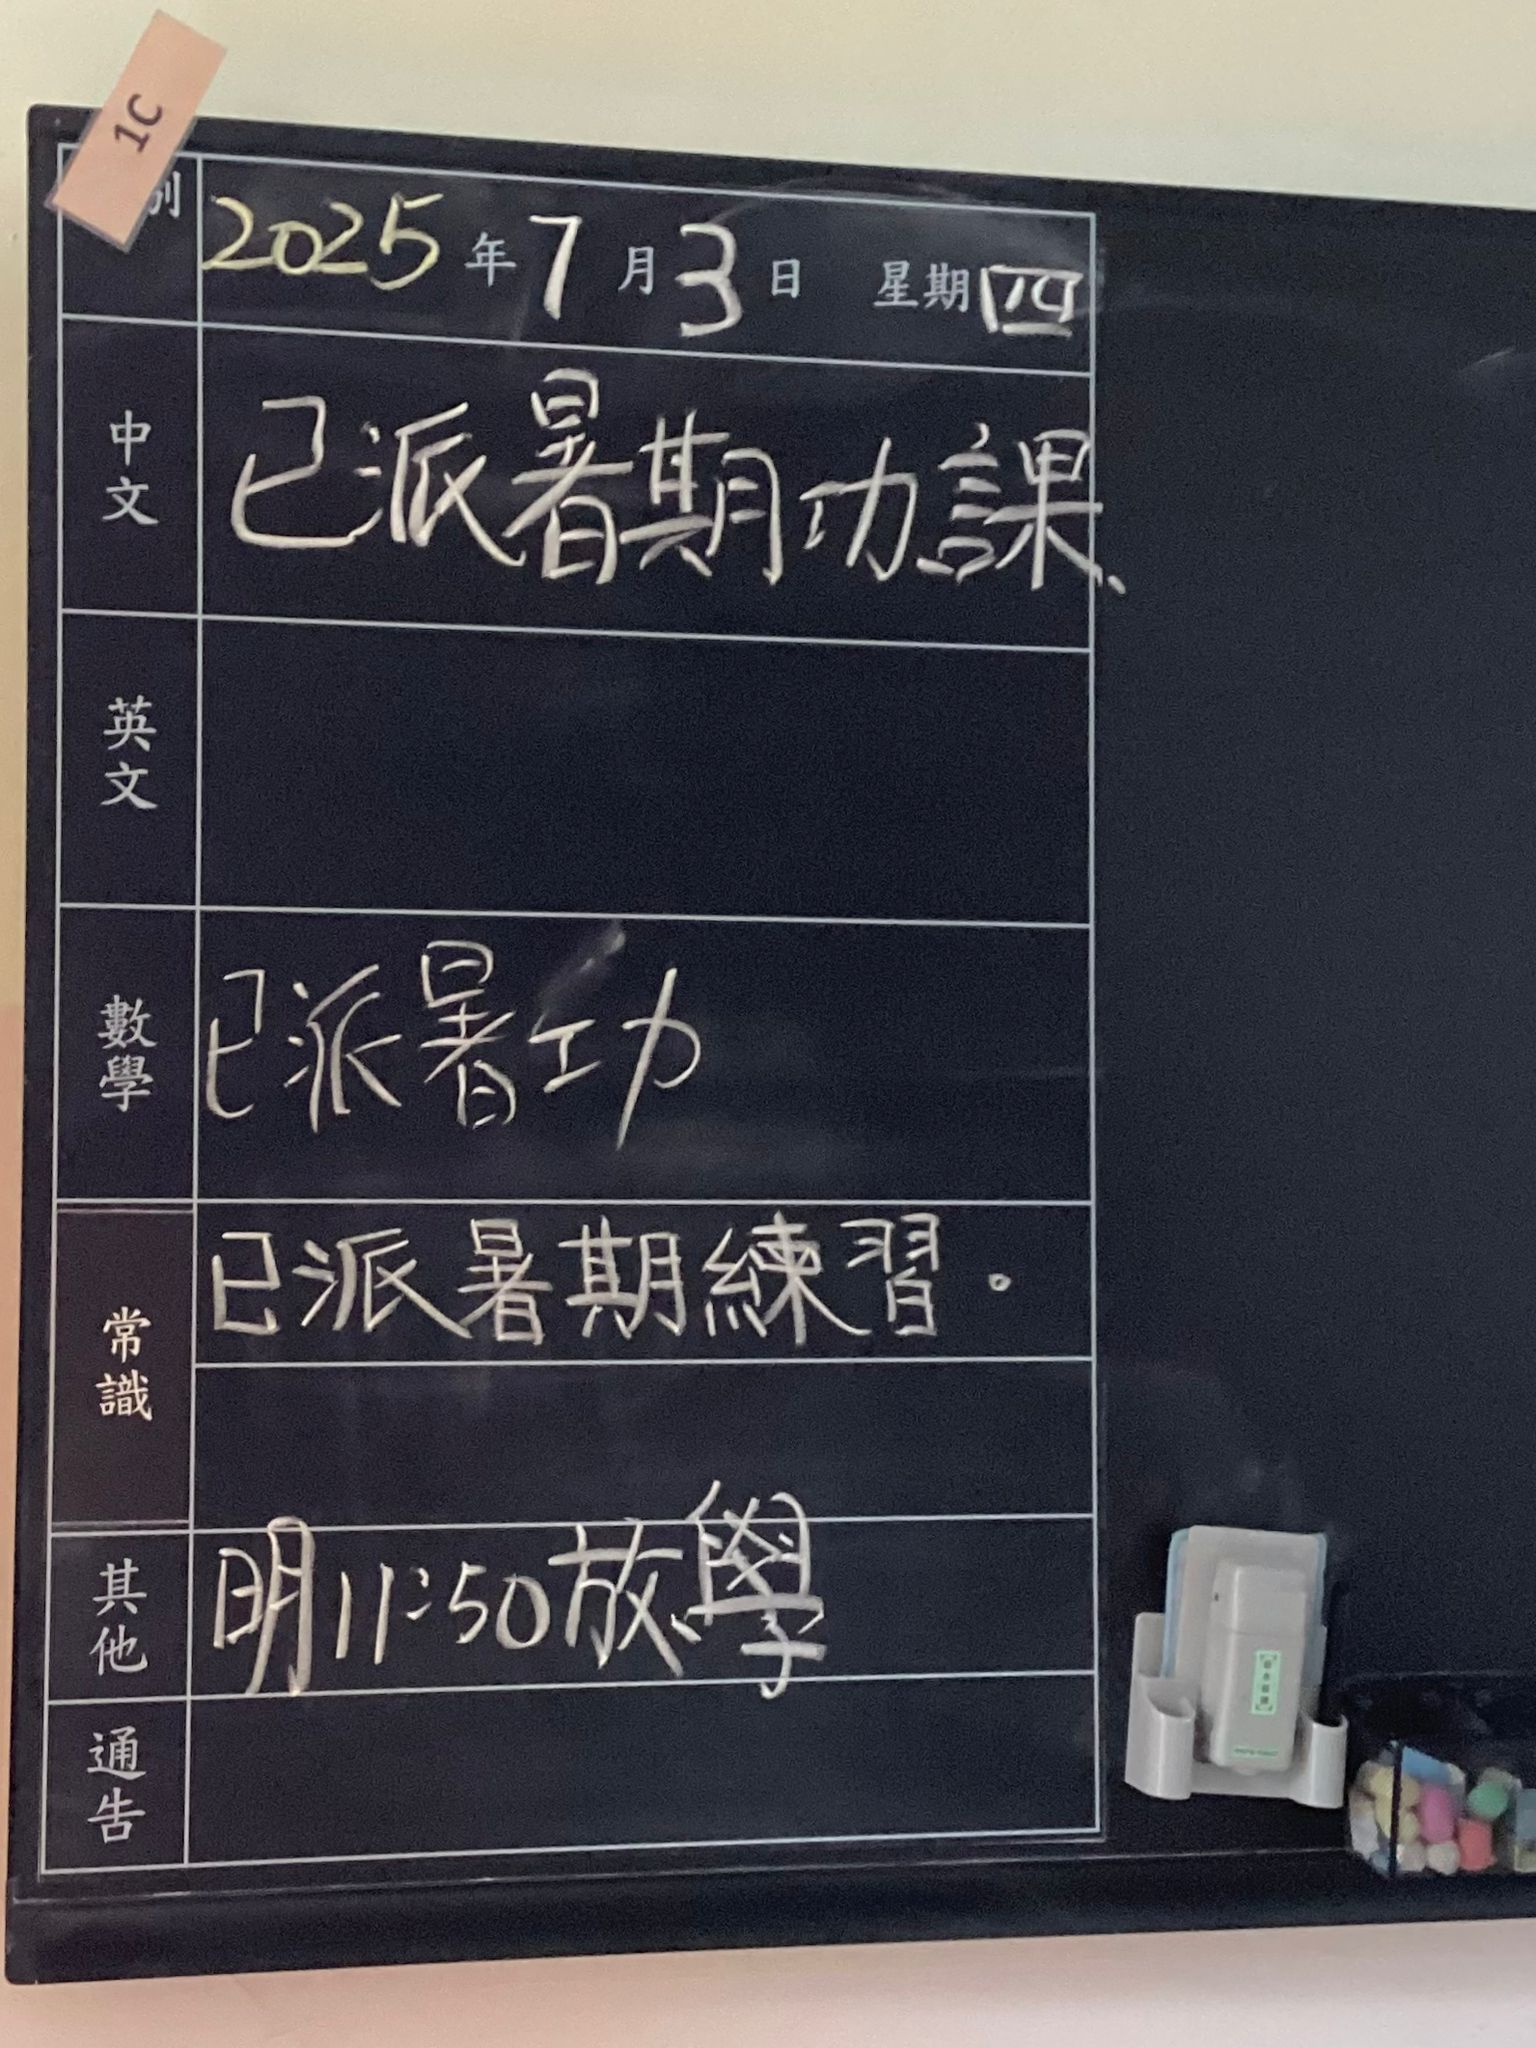 1C
別
2025年7月3日 星期四
中文
已派暑期功課、
英文
數學
已派暑功
常識
已派暑期練習。
其他
明11:50放學
通告